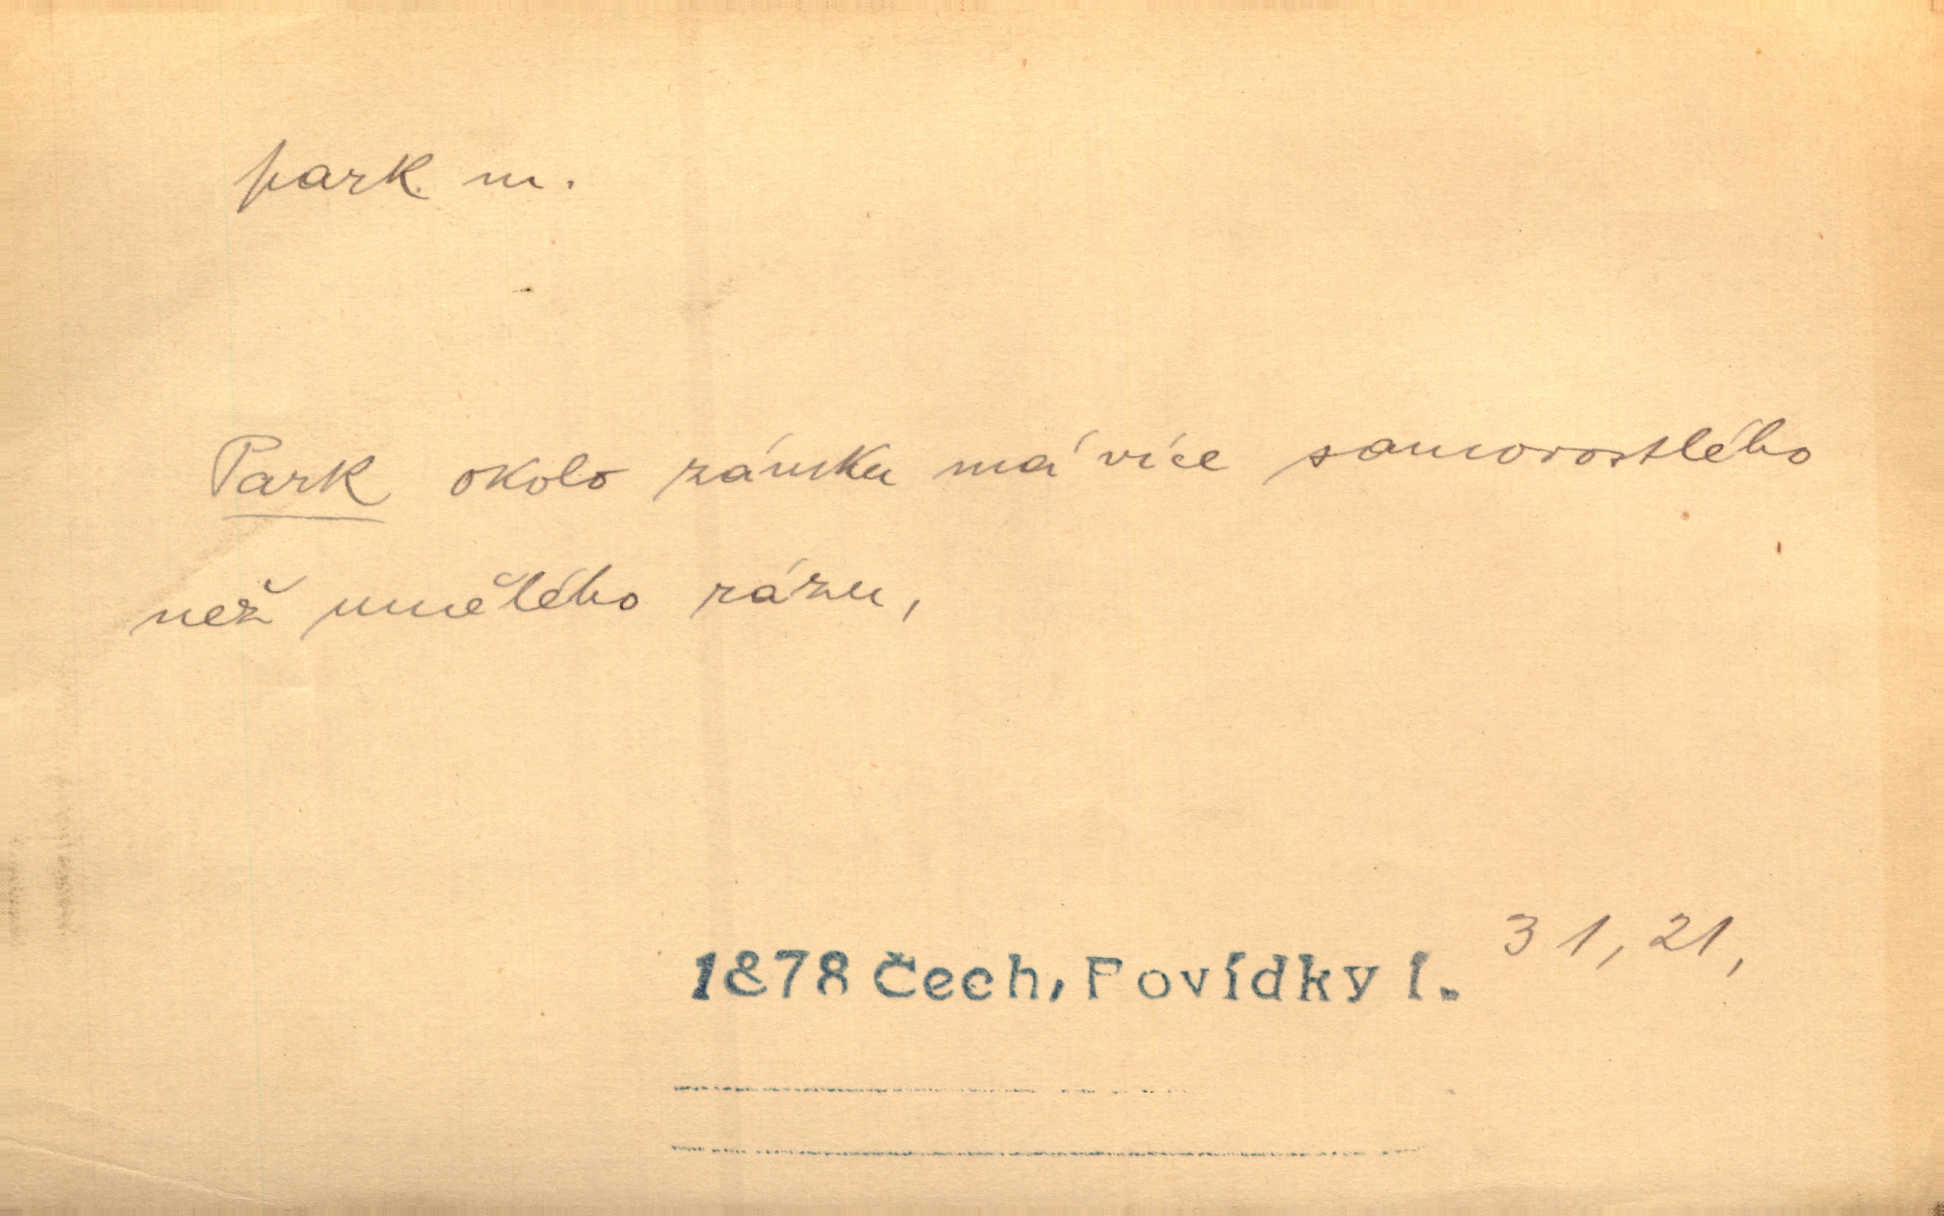 park m.
Park okolo zámku má více samorostlého
než umělého rázu,
1878 Čech, Povídky I. 31, 21,